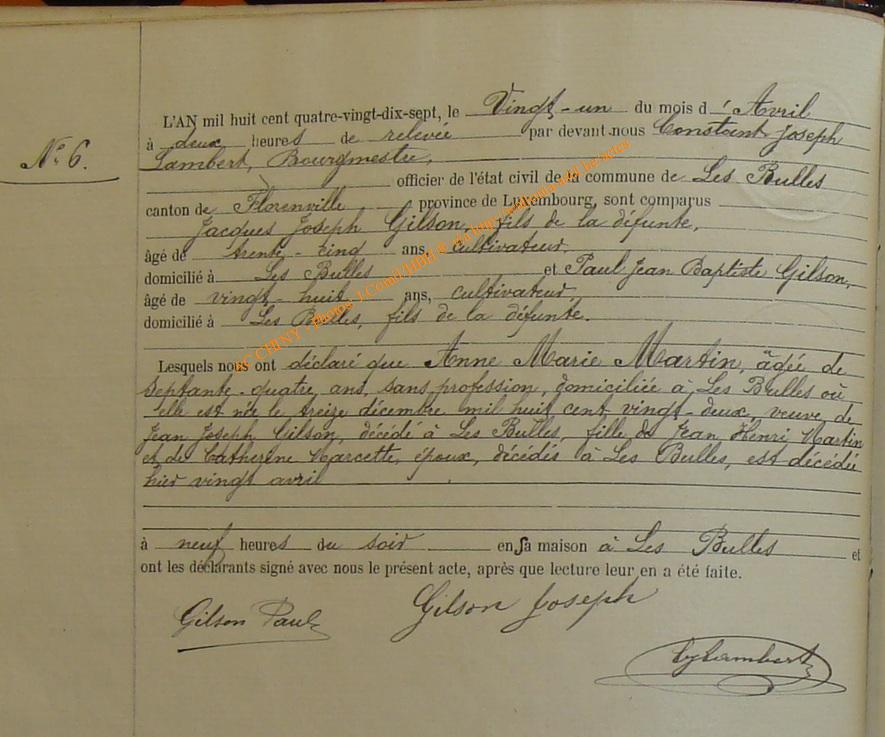 L'AN mil huit cent quatre-vingt-dix-sept, le Vingt-un du mois d'Avril
à deux heures de relevée par devant nous Constant Joseph
N° 6.
Lambert, Bourgmestre,
officier de l'état civil de la commune de Les Bulles
canton de Florenville province de Luxembourg, sont comparus
Jacques Joseph Gilson, fils de la défunte,
âgé de trente-cinq ans, cultivateur,
domicilié à Les Bulles et Paul Jean Baptiste Gilson,
âgé de vingt-huit ans, cultivateur,
domicilié à Les Bulles, fils de la défunte.
Lesquels nous ont déclaré que Anne Marie Martin, âgée de
septante-quatre ans, sans profession, domiciliée à Les Bulles où
elle est née le treize décembre mil huit cent vingt-deux, veuve de
Jean Joseph Gilson, décédé à Les Bulles, fille de Jean Henri Martin
et de Catherine Marcette, époux, décédés à Les Bulles, est décédée
hier vingt avril
à neuf heures du soir en sa maison à Les Bulles et
ont les déclarants signé avec nous le présent acte, après que lecture leur en a été faite.
Gilson Paul Gilson Joseph
CjLambert
CHINY - Photos J.Comil